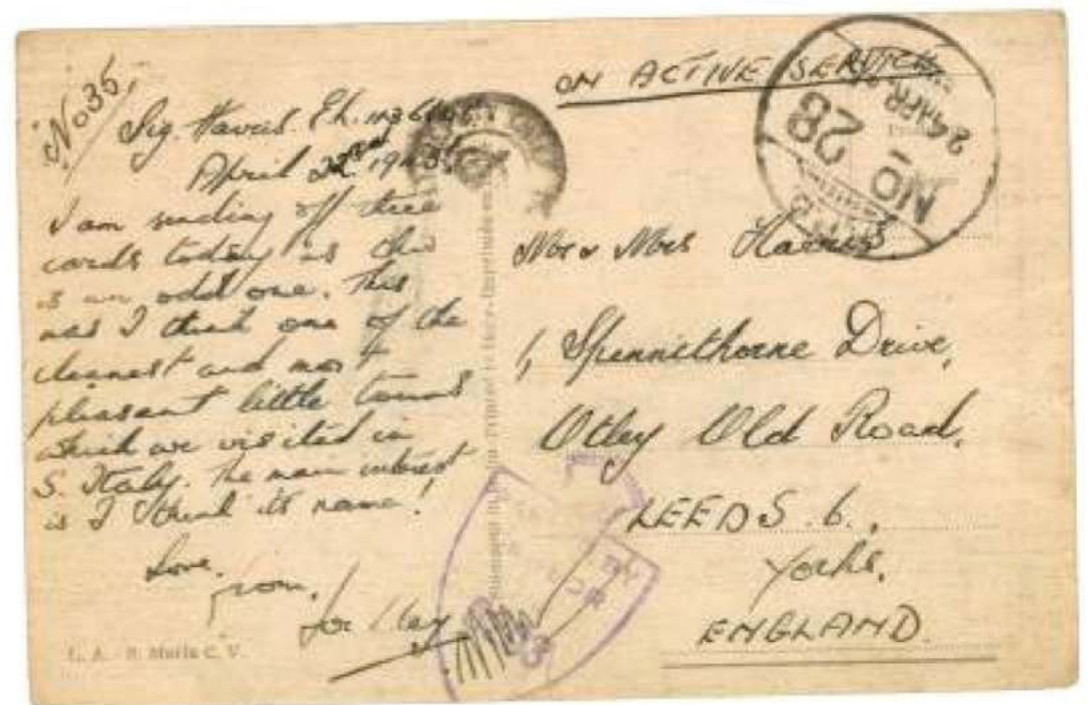 No 35,
Sig. Harris. E.h.
April 22nd 1945.
I am sending off three
cards today as this
is an odd one. This
was I think one of the
cleanest and most
pleasant little towns
which we visited in
S. Italy. The main interest
is I think its name!
Love,
from,
L. A. - S. Maria C. V.
ON ACTIVE SERVICE.
Mr & Mrs Harris.
1, Spennithorne Drive,
Otley Old Road,
LEEDS. 6.,
Yorks,
ENGLAND.
28
NO
24 APR